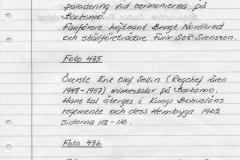 paradering vid ceremonierna på
Backamo.
Fanförare löjtnant Bengt Nordlund
och ställföreträdare Furir Sok Svensson.
Foto 435
Överste Erik Olof Sellin (Regchef åren
1948-1957) minnestalar på Backamo.
Hans tal återges i Kungl Bohusläns
regemente och dess Hembygd 1962
sidorna 112-116.
Foto 436